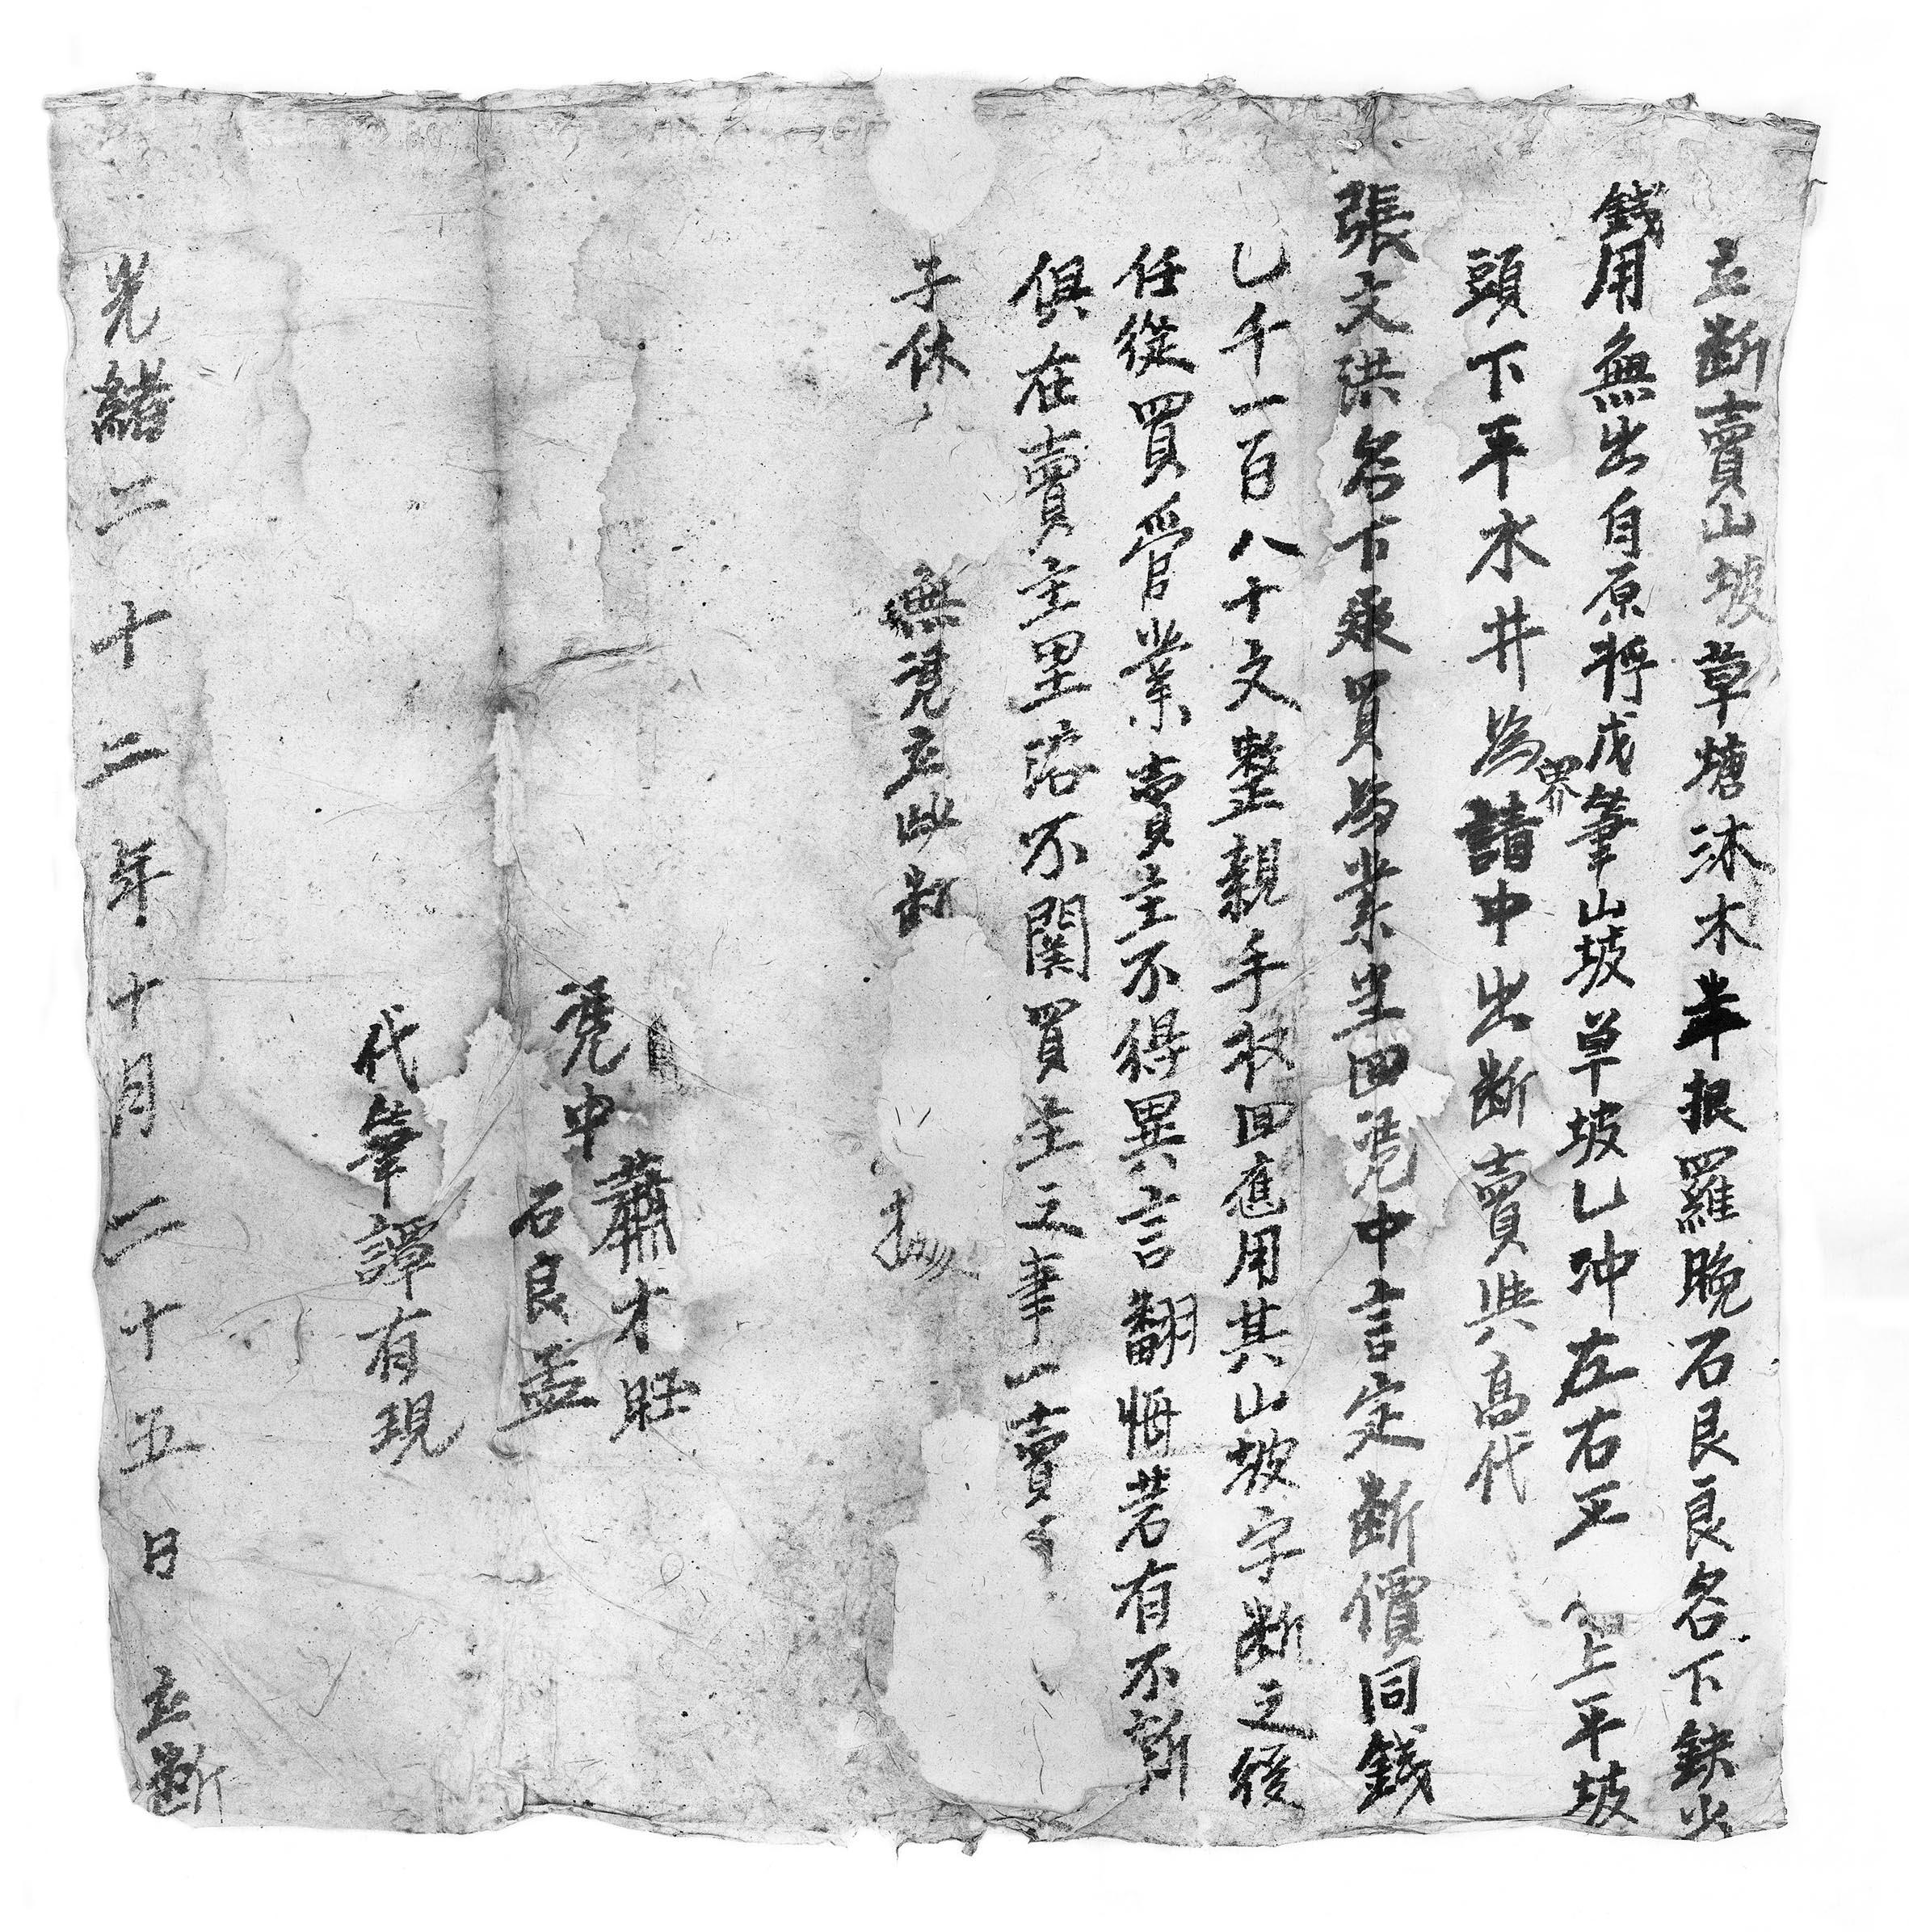 立断賣山坡草塘沐木羊根羅晚石艮良名下缺少
錢用無出自原将戊筆山坡草坡乚冲左右平上平坡
頭下平水井為界請中出断賣與高代
張文洪名下承買為業坐四凴中言定断價同錢
乚千一百八十文整親手收回應用其山坡字断之後
任從買管業賣主不得異言翻悔若有不
俱在賣主里落不関買主之事一賣
子休無凴立此断
凴中蕭才旺
石良孟
代筆譚有現
光緒二十二年十月二十五日立断